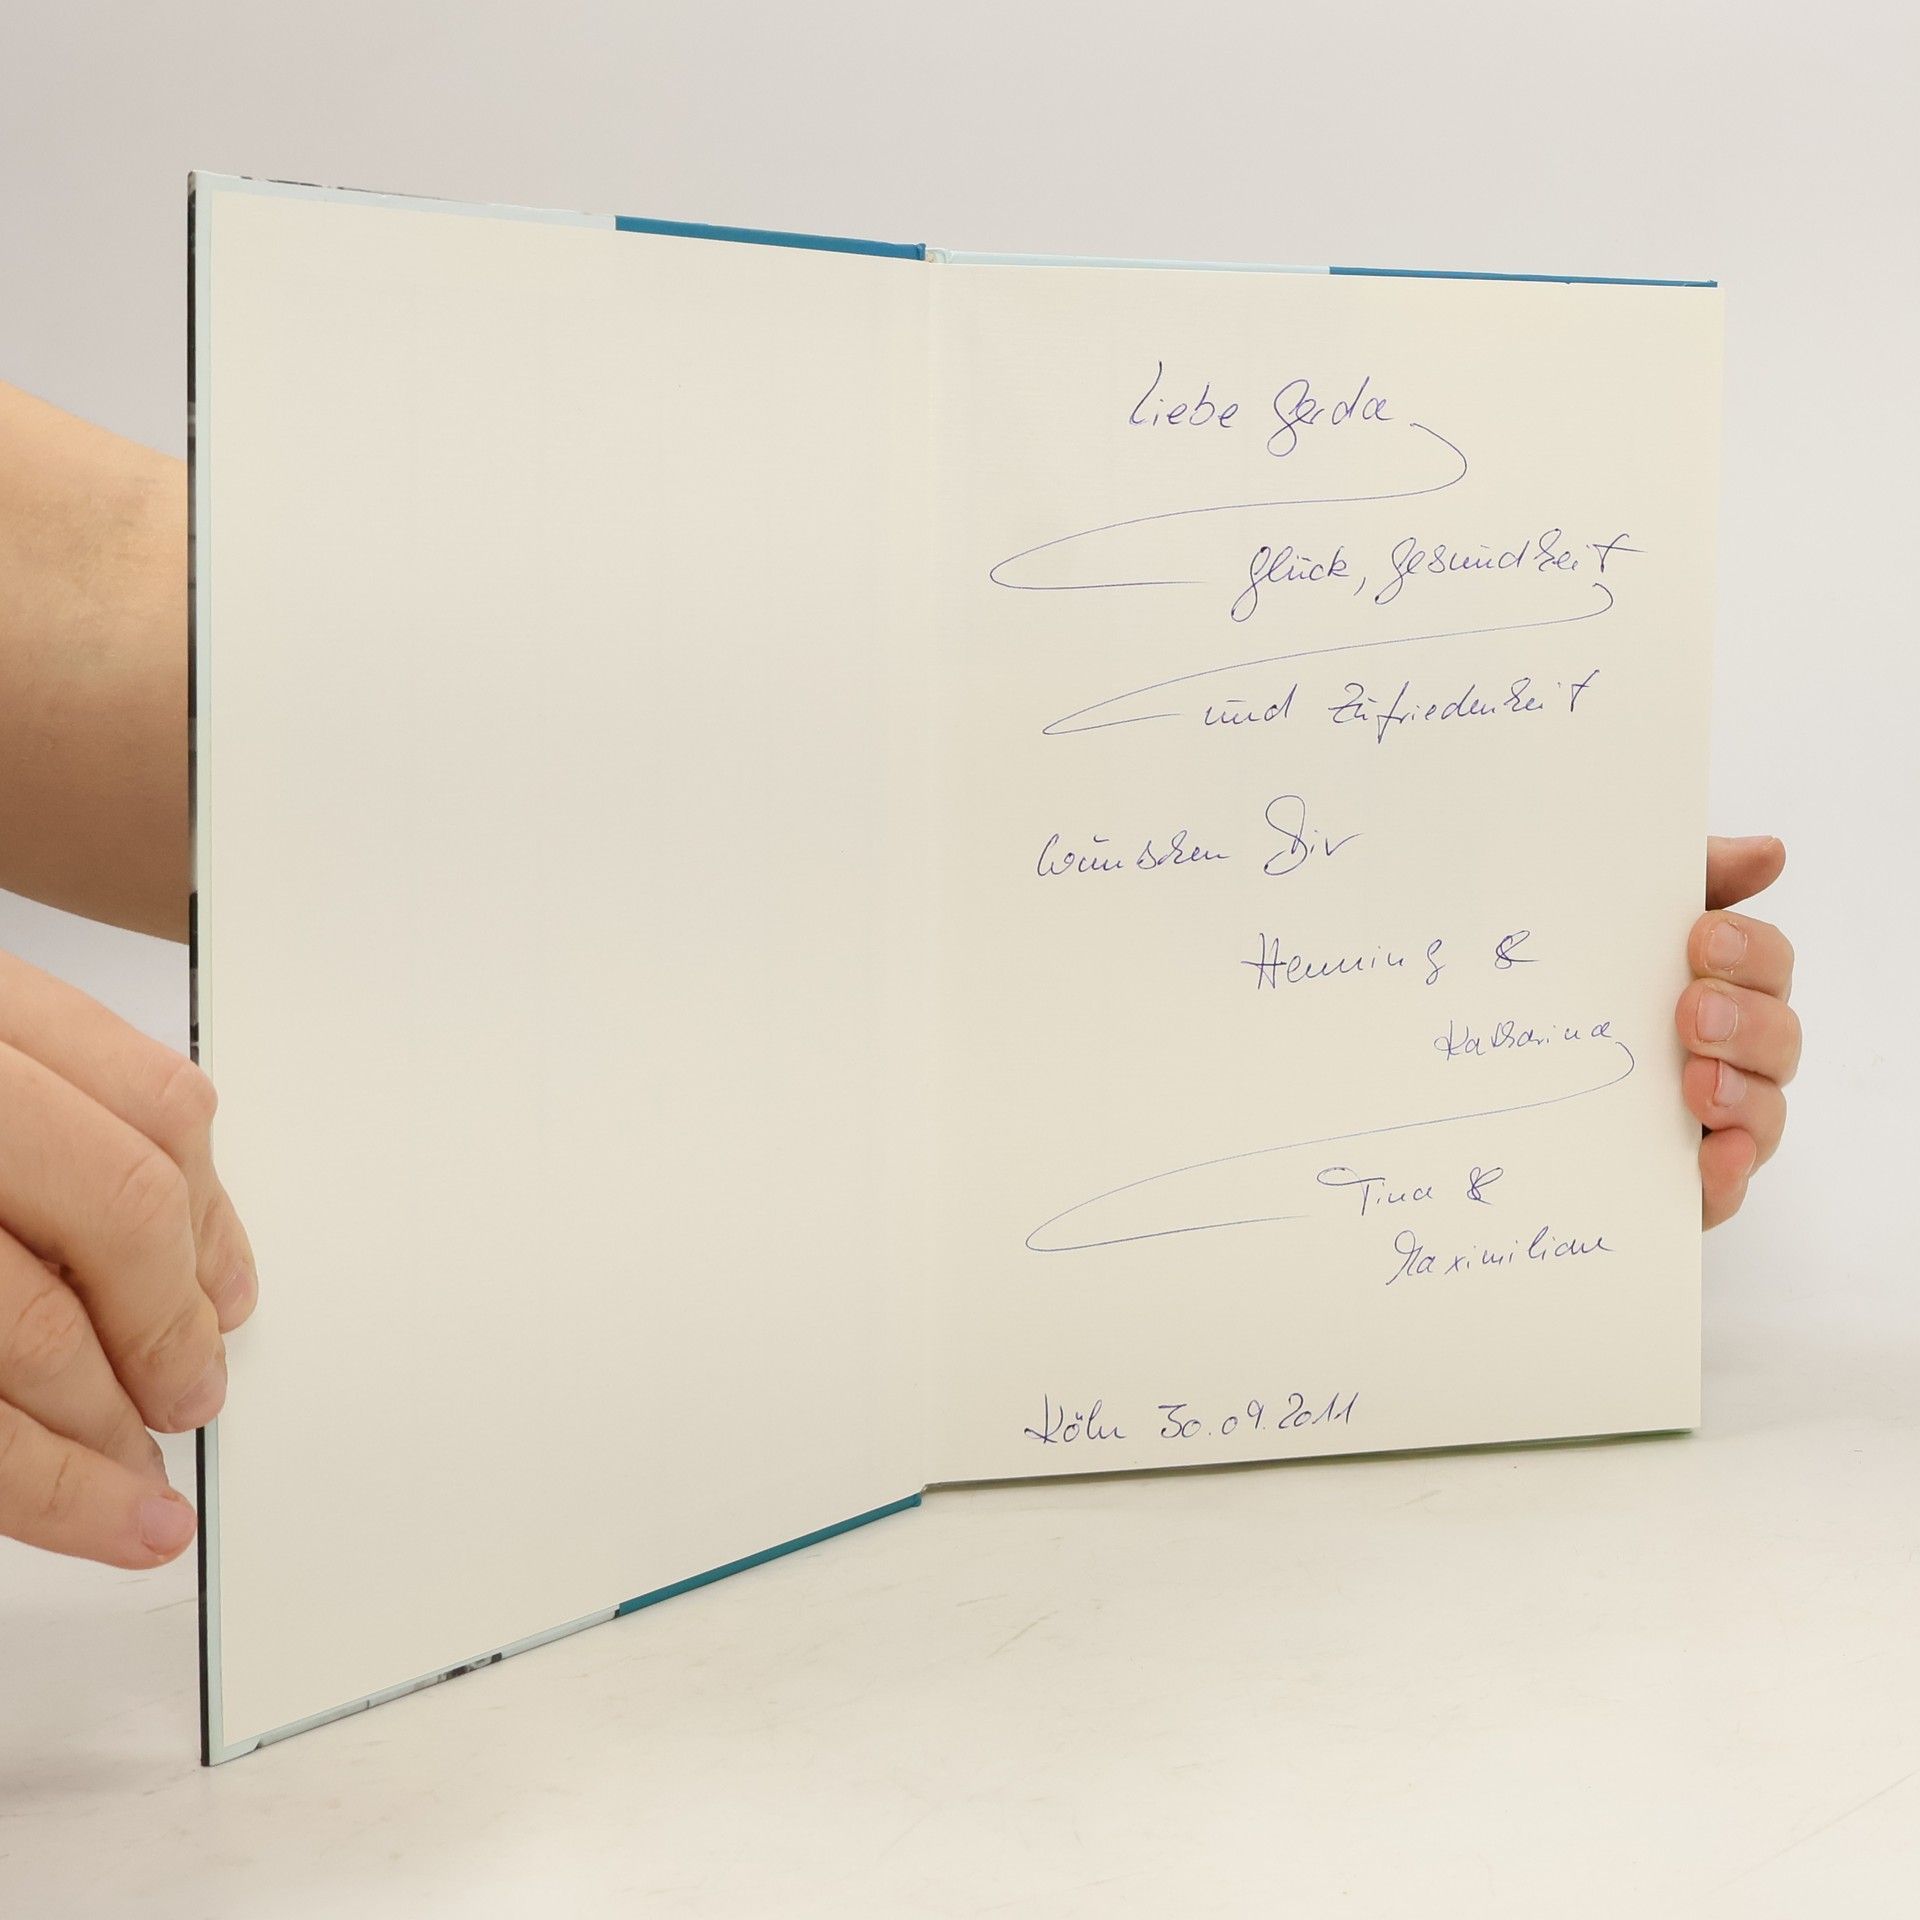 Liebe Gerda,
Glück, Gesundheit
und Zufriedenheit
wünschen Dir
Henning &
Katharina
Tina &
Maximiliane
Köln 30.09.2011